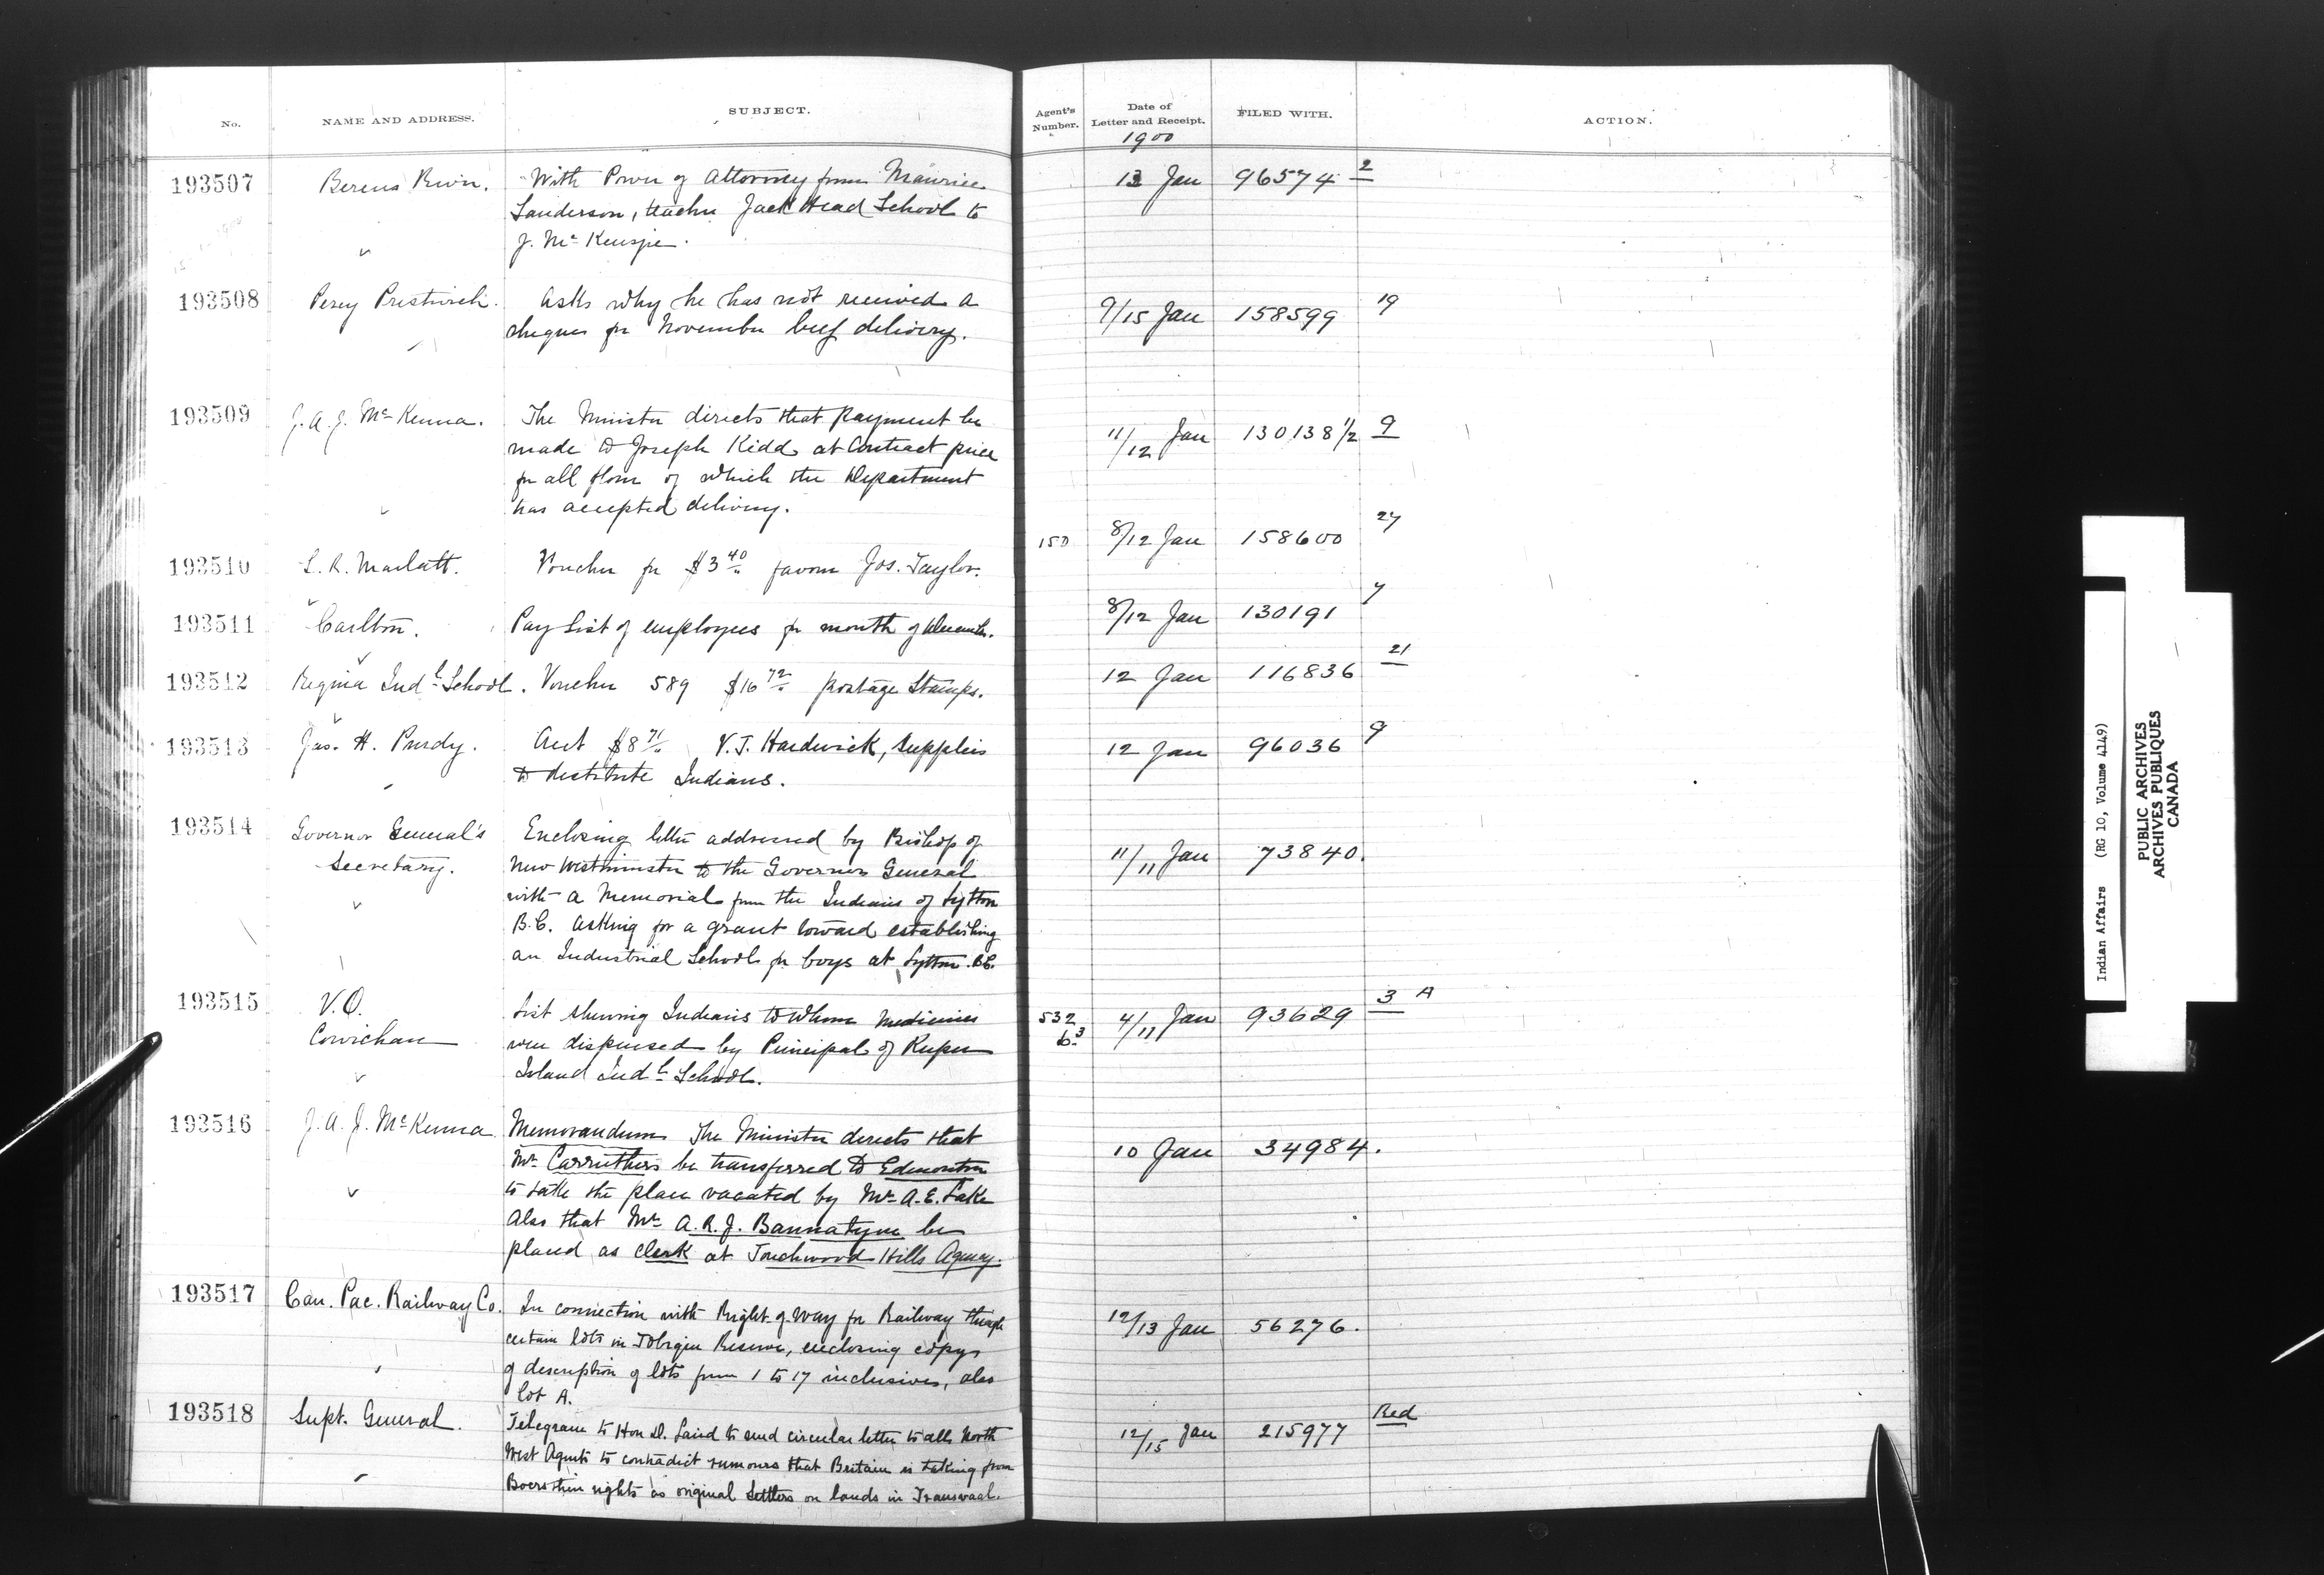 No. NAME AND ADDRESS. SUBJECT. Agent's Number. Date of Letter and Receipt. FILED WITH. ACTION.
1900
193507 Berens River. With Power of Attorney from Maurice 13 Jan 96574 2
Sanderson, teacher Jack Head School to
J. McKenzie.
193508 Percy Prestwich. Asks why he has not received a 9/15 Jan 158599 19
cheque for November beef delivery.
193509 J. A. J. McKenna. The Minister directs that payment be 11/12 Jan 130138 1/2 9
made to Joseph Kidd at Contract price
for all flour of which the Department
has accepted delivery.
193510 S. R. Marlatt. Voucher for $3 40 favour Jos. Taylor. 150 8/12 Jan 158600 27
193511 Carlton. Pay List of employees for month of December. 8/12 Jan 130191 7
193512 Regina Indl School. Voucher 589 $16 72 postage Stamps. 12 Jan 116836 21
193513 Jas. H. Purdy. Acct $8 71 V. T. Hardwick, supplies 12 Jan 96036 9
to destitute Indians.
193514 Governor General's Enclosing letter addressed by Bishop of 11/11 Jan 73840.
Secretary. New Westminster to the Governor General
with a Memorial from the Indians of Lytton
B.C. asking for a grant toward establishing
an Industrial School for boys at Lytton. B.C.
193515 V.O. List shewing Indians to whom Medicines 532 4/11 Jan 93629 3 A
Cowichan were dispensed by Principal of Kuper
Island Indl School.
193516 J. A. J. McKenna Memorandum The Minister directs that 10 Jan 34984.
Mr Carruthers be transferred to Edmonton
to take the place vacated by Mr A. E. Lake
Also that Mr A. R. J. Bannatyne be
placed as Clerk at Touchwood Hills Agency.
193517 Can. Pac. Railway Co. In connection with Right of Way for Railway through 12/13 Jan 56276.
certain lots in Tobique Reserve, enclosing copy
of description of lots from 1 to 17 inclusive, also
lot A.
193518 Supt. General. Telegram to Hon D. Laird to send circular letter to all North 12/15 Jan 215977 Red
West Agents to contradict rumours that Britain is taking from
Boers their rights as original Settlers on lands in Transvaal.
Indian Affairs (RG 10, Volume 4149)
PUBLIC ARCHIVES
ARCHIVES PUBLIQUES
CANADA